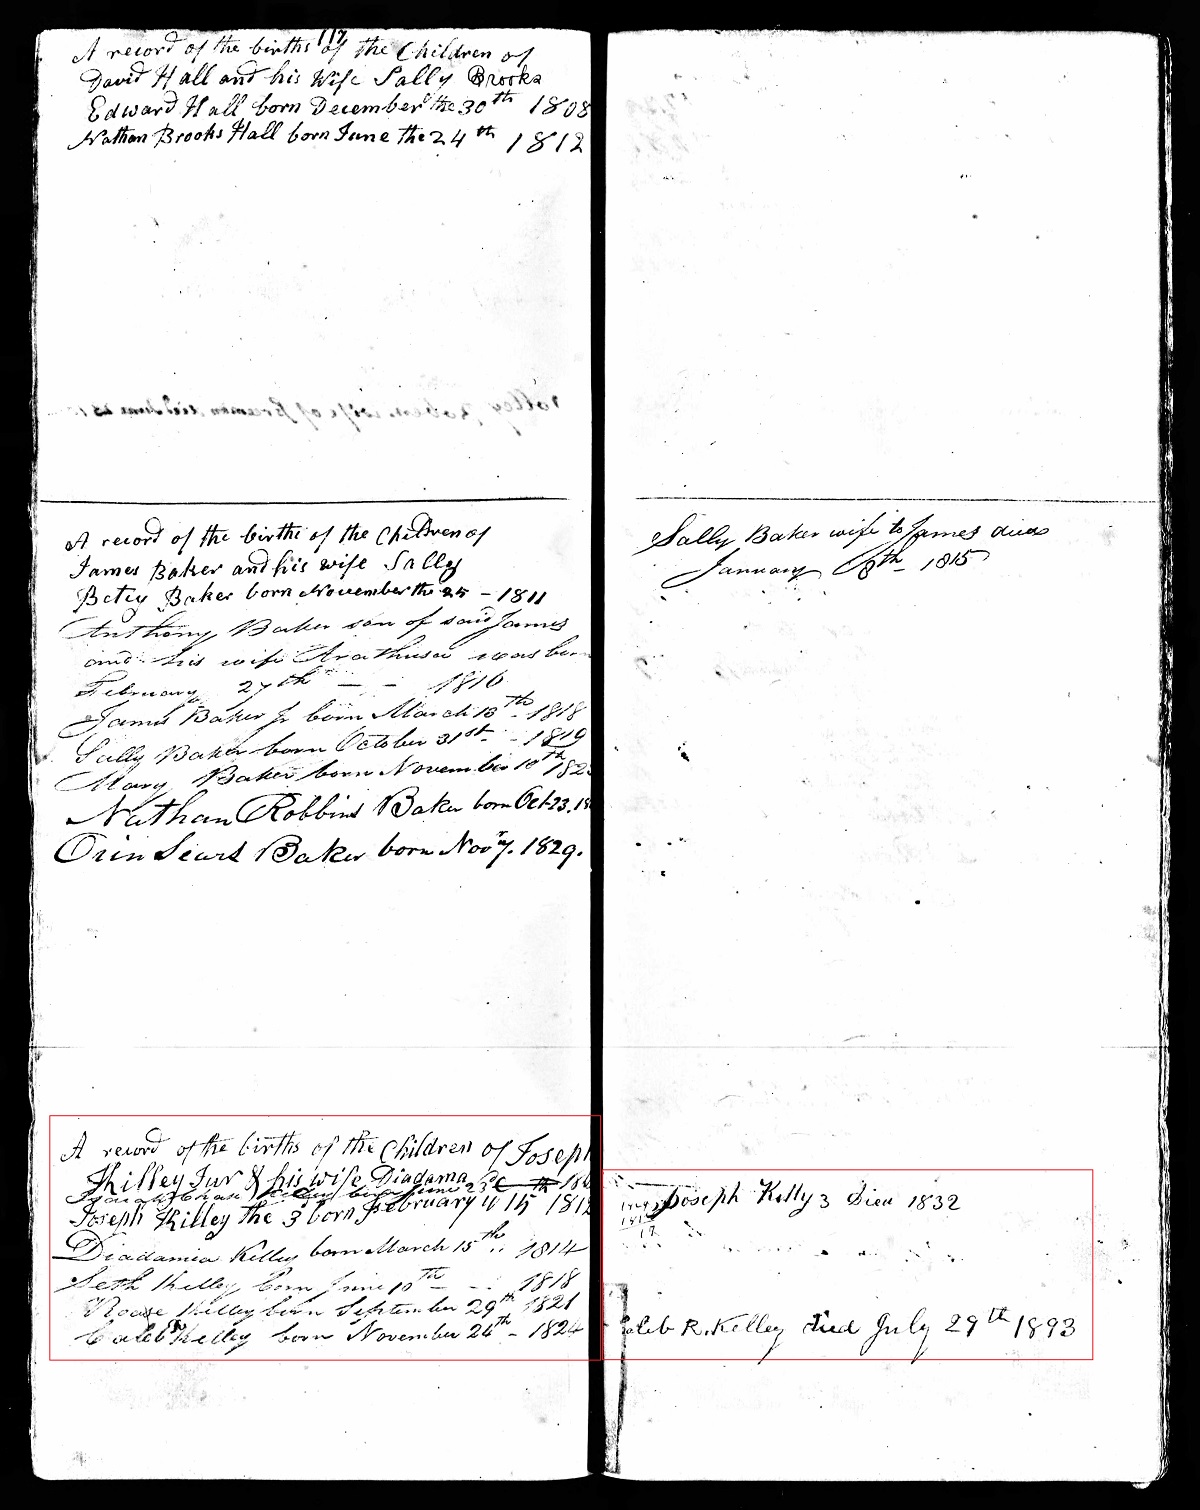 117
A record of the births of the Children of
David Hall and his Wife Sally Brooks
Edward Hall born December the 30th 1808
Nathan Brooks Hall born June the 24th 1812
A record of the births of the Children of
James Baker and his wife Sally
Betcy Baker born November the 25 - 1811
Anthony Baker son of said James
and his wife Arathusa was born
February 27th - - 1816
James Baker Jr born March 13th - 1818
Sally Baker born October 31st - 1819
Mary Baker born November 10th 182
Nathan Robbins Baker born Oct 23, 18
Orin Sears Baker born Nov 7. 1829.
Sally Baker wife to James died
January 8th - 1815
A record of the births of the Children of Joseph
Killey Jur & his wife Diadama
born June 23
Joseph Killey the 3 born February 15 1812
Diadamia Kelley born March 15th .. 1814
Seth Killey born June 10th - - 1818
Killey born September 29th 1821
Caleb R Kelley born November 26th - 1824
Joseph Kelly 3 Died 1832
Caleb R. Kelley Died July 29th 1893